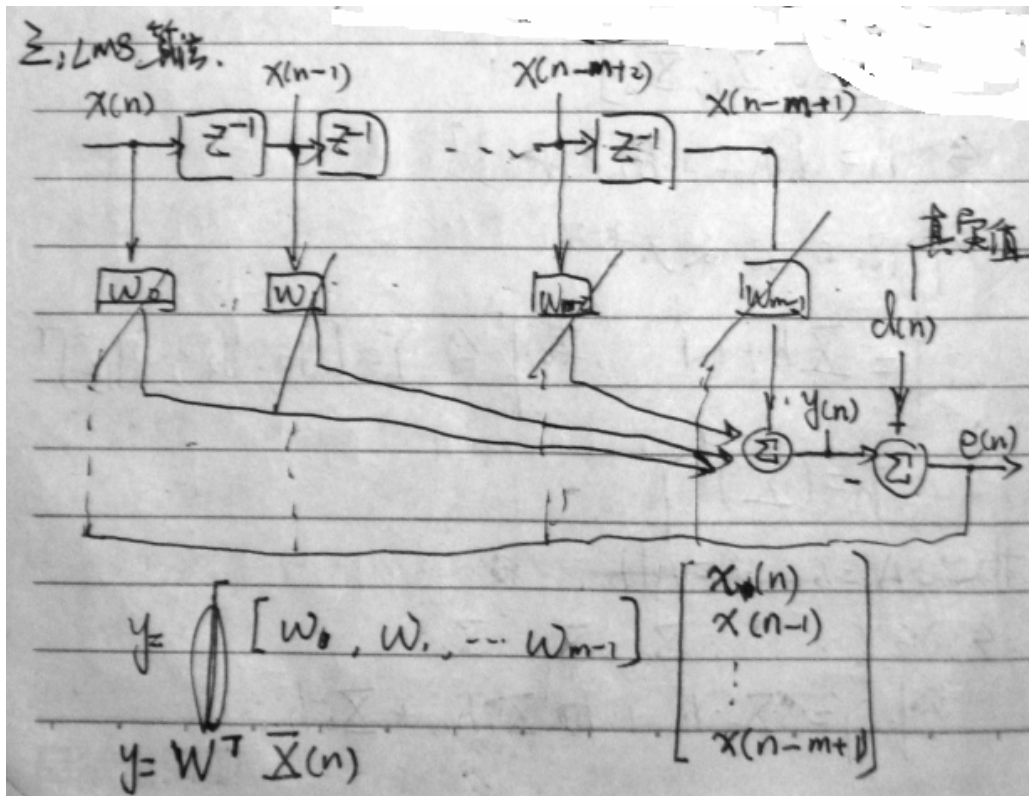 三, LMS 算法.
x(n) x(n-1) x(n-m+2) x(n-m+1)
z⁻¹ z⁻¹ ... z⁻¹
真实值
w₀ w₁ wₘ₋₂ wₘ₋₁
d(n)
y(n)
+
Σ Σ e(n)
-
y= [w₀, w₁, ... wₘ₋₁] [x(n)
x(n-1)
⋮
x(n-m+1)]
y= Wᵀ X̄(n)